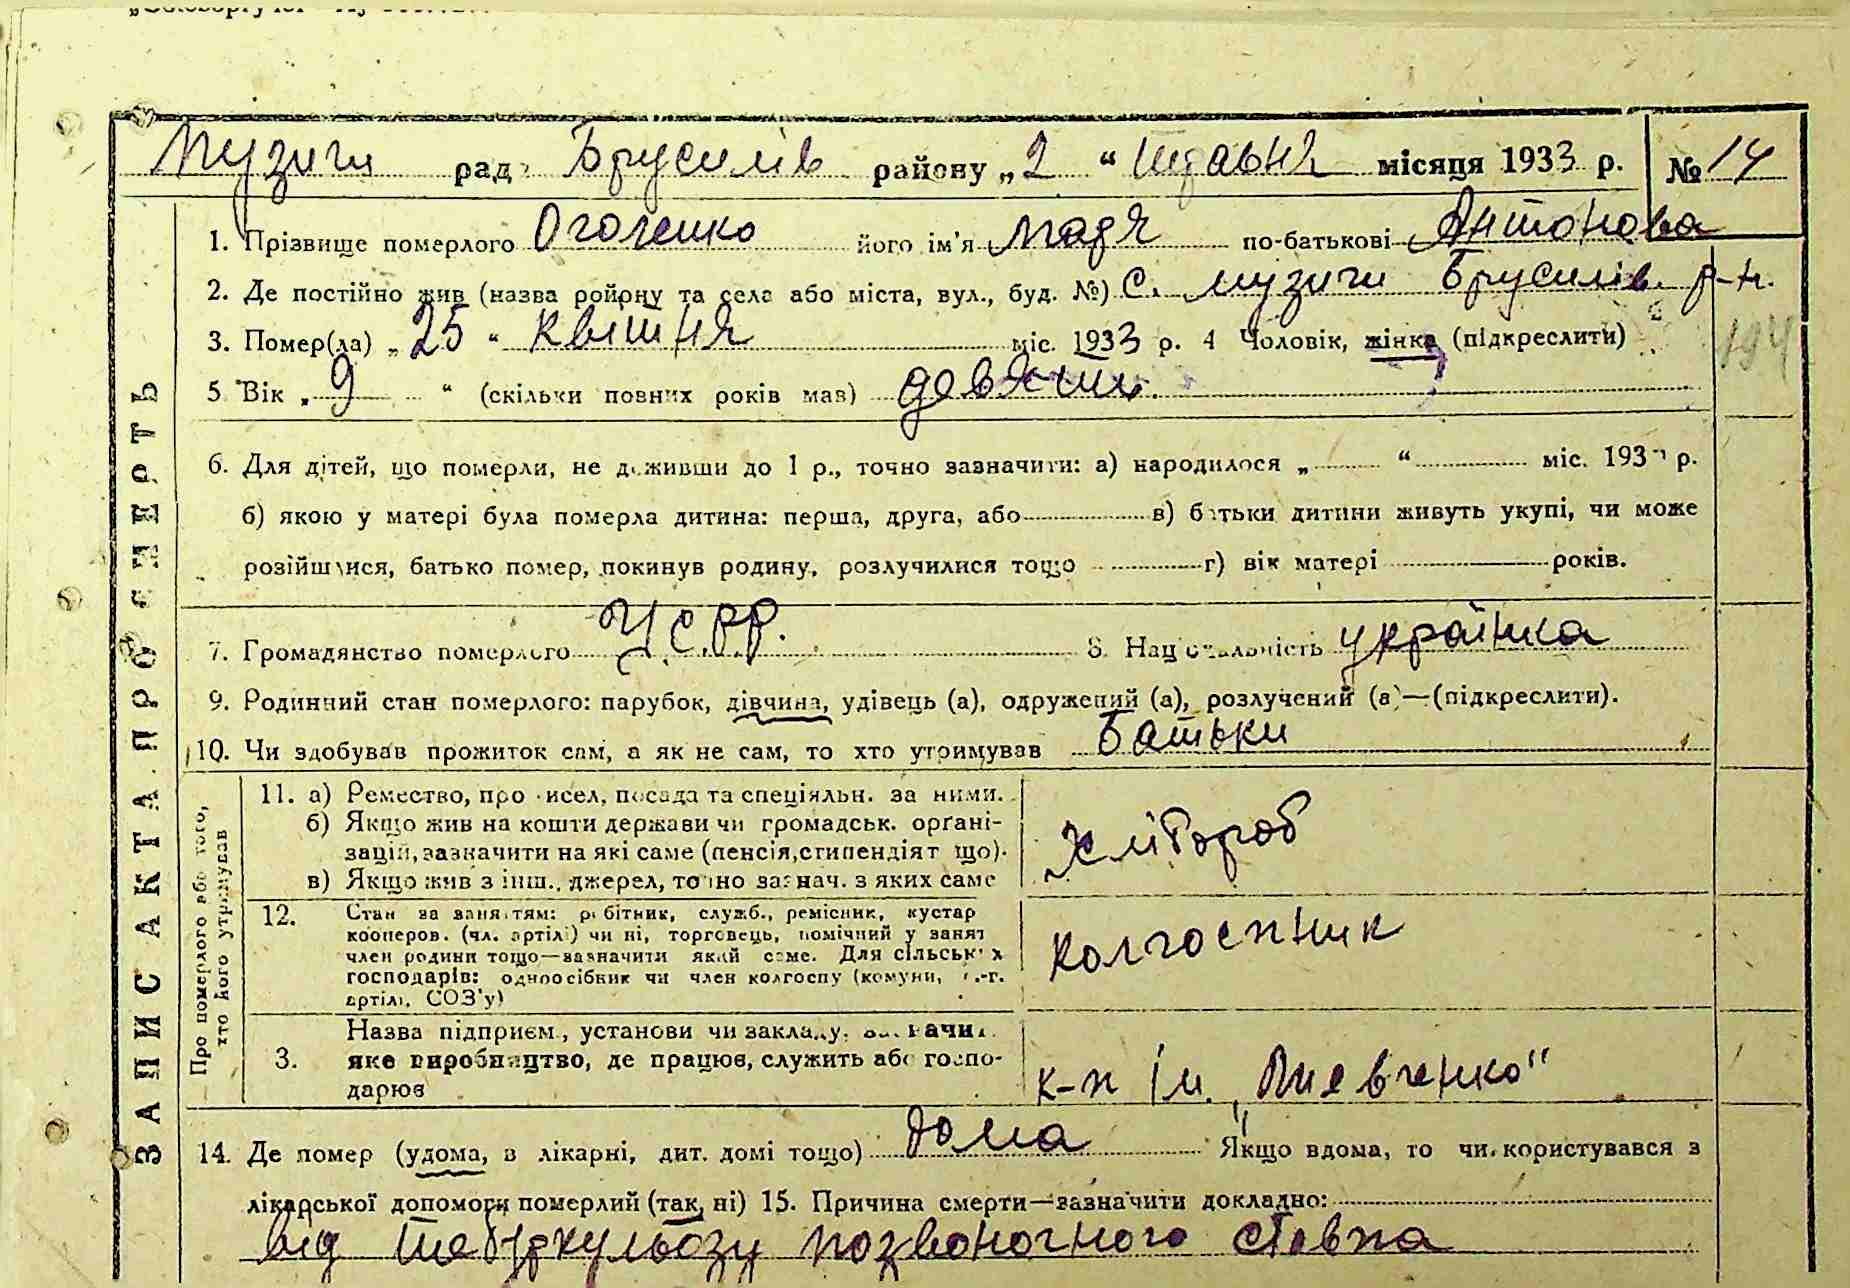 Музичи рад Брусилів району „2" Травня місяця 1933 р. № 14
1. Прізвище померлого Оголенко його ім'я Надя по-батькові Антонова
2. Де постійно жив (назва ройрну та села або міста, вул., буд. №) С. Музичи Брусилів. р-н.
3. Помер(ла) „25" Квітня міс. 1933 р. 4 Чоловік, жінка (підкреслити)
194
5 Вік „9" (скільки повних років мав) дев'ять.
6. Для дітей, що померли, не доживши до 1 р., точно зазначити: а) народилося „ " міс. 193 р.
б) якою у матері була померла дитина: перша, друга, або в) батьки дитини живуть укупі, чи може
розійшлися, батько помер, покинув родину, розлучилися тощо г) вік матері років.
7. Громадянство померлого У.С.Р.Р. 8. Національність українка
9. Родинний стан померлого: парубок, дівчина, удівець (а), одружений (а), розлучений (а)—(підкреслити).
10. Чи здобував прожиток сам, а як не сам, то хто утримував Батьки
ЗАПИС АКТА ПРО СМЕРТЬ
Про померлого або того,
хто його утримував
11. а) Ремество, промисел, посада та спеціяльн. за ними.
б) Якщо жив на кошти держави чи громадськ. органі-
зацій, зазначити на які саме (пенсія, стипендіят що).
в) Якщо жив з інш., джерел, точно зазнач. з яких саме
Хлібороб
12. Стан за заняттям: робітник, служб., ремісник, кустар
кооперов. (чл. артілі) чи ні, торговець, помічний у занят
член родини тощо—зазначити який саме. Для сільських
господарів: одноосібник чи член колгоспу (комуни, с.-г.
артілі, СОЗ'у)
колгоспник
3. Назва підприєм., установи чи закладу, зазначи
яке виробництво, де працює, служить або госпо-
дарює
к-п ім. „Шевченко"
14. Де помер (удома, в лікарні, дит. домі тощо) дома Якщо вдома, то чи користувався з
лікарської допомоги померлий (так, ні) 15. Причина смерти—зазначити докладно:
від Туберкульозу позвоночного ставпа